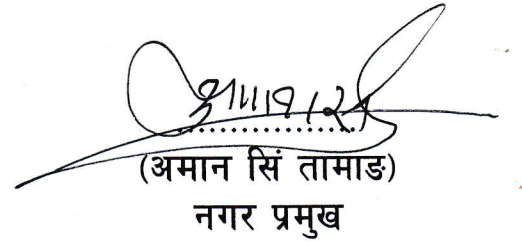 (अमान सिं तामाङ)
नगर प्रमुख